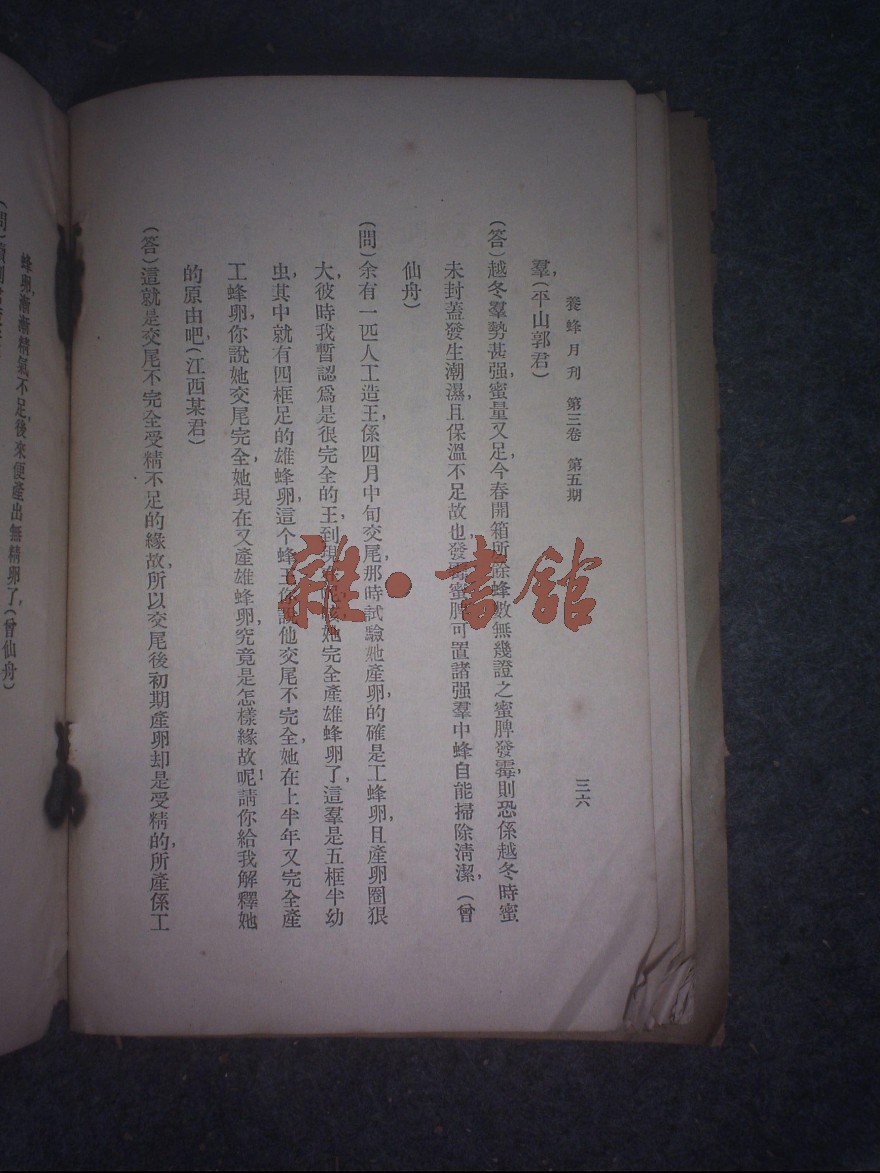 養蜂月刊 第三卷 第五期
三六
羣，(平山郭君)
(答)越冬羣勢甚强，蜜量又足，今春開箱所餘蜂數無幾證之蜜脾發霉，則恐係越冬時蜜
未封蓋發生潮濕，且保溫不足故也，發霉蜜脾可置諸强羣中蜂自能掃除清潔，(曾
仙舟)
(問)余有一匹人工造王，係四月中旬交尾，那時試驗她產卵，的確是工蜂卵，且產卵圈狠
大，彼時我暫認爲是很完全的王，到現她完全產雄蜂卵了，這羣是五框半幼
虫，其中就有四框足的雄蜂卵，這个蜂王你說他交尾不完全，她在上半年又完全產
工蜂卵，你說她交尾完全，她現在又產雄蜂卵，究竟是怎樣緣故呢！請你給我解釋她
的原由吧，(江西某君)
(答)這就是交尾不完全受精不足的緣故，所以交尾後初期產卵却是受精的，所產係工
蜂卵，漸漸精氣不足，後來便產出無精卵了，(曾仙舟)
(問)
雜·書館